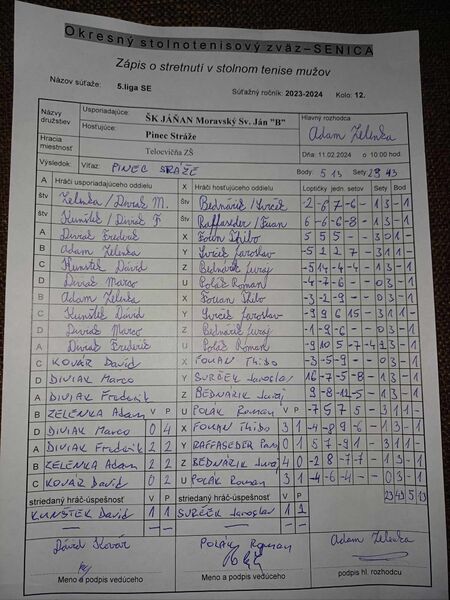 Okresný stolnotenisový zväz – SENICA
Zápis o stretnutí v stolnom tenise mužov
Názov súťaže: 5.liga SE Súťažný ročník: 2023-2024 Kolo: 12.
Názvy družstiev Usporiadajúce: ŠK JÁŇAN Moravský Sv. Ján "B" Hlavný rozhodca
Hosťujúce: Pinec Stráže Adam Zelenka
Hracia miestnosť Telocvičňa ZŠ Dňa: 11.02.2024 o 10:00 hod.
Výsledok Víťaz: PINEC STRÁŽE Body: 5 13 Sety 29 43
A Hráči usporiadajúceho oddielu X Hráči hosťujúceho oddielu Loptičky jedn. setov Sety Bod
štv Zelenka / Diviak M. Štv Bednárik / Surček -2 -6 7 -6 1 3 - 1
štv Kunštek / Diviak F. Štv Raffaseder / Fouan 6 -6 -6 -8 1 3 - 1
A Diviak Frederik X Fouan Thibo 5 5 5 3 0 1 -
B Adam Zelenka Y Surček Jaroslav
C Kunštek Dávid Z Bednárik Juraj
D Diviak Marco U Polák Roman -4 -7 -6 0 3 - 1
B Adam Zelenka X Fouan Thibo -3 -2 -9 0 3 - 1
C Kunštek Dávid Y Surček Jaroslav -9 9 6 15 3 1 1 -
D Diviak Marco Z Bednárik Juraj -1 -9 -6 0 3 - 1
A Diviak Frederik U Polák Roman
C KOVÁR David X FOUAN Thibo -3 -5 -9 0 3 - 1
D DIVIAK Marco Y SURČEK Jaroslav 16 -7 -5 -8 1 3 - 1
A DIVIAK Frederik Z BEDNÁRIK Juraj 9 -8 -12 -5 1 3 - 1
B ZELENKA Adam V P U POLÁK Roman V P -7 5 7 5 3 1 1 -
D DIVIAK Marco 0 4 X FOUAN Thibo 3 1
A DIVIAK Frederik 2 2 Y RAFFASEDER 0 1 5 7 -9 1 3 1 1 -
B ZELENKA Adam 2 2 Z BEDNÁRIK Juraj 4 0 -2 8 -7 -7 1 3 - 1
C KOVÁR David 0 2 U POLÁK Roman 3 1 -4 -6 -4 0 3 - 1
striedaný hráč-úspešnosť V P striedaný hráč-úspešnosť V P 29 43 5 13
KUNŠTEK David 1 1 SURČEK Jaroslav 1 2
Dávid Kovár POLÁK Roman Adam Zelenka
Meno a podpis vedúceho Meno a podpis vedúceho podpis hl. rozhodcu